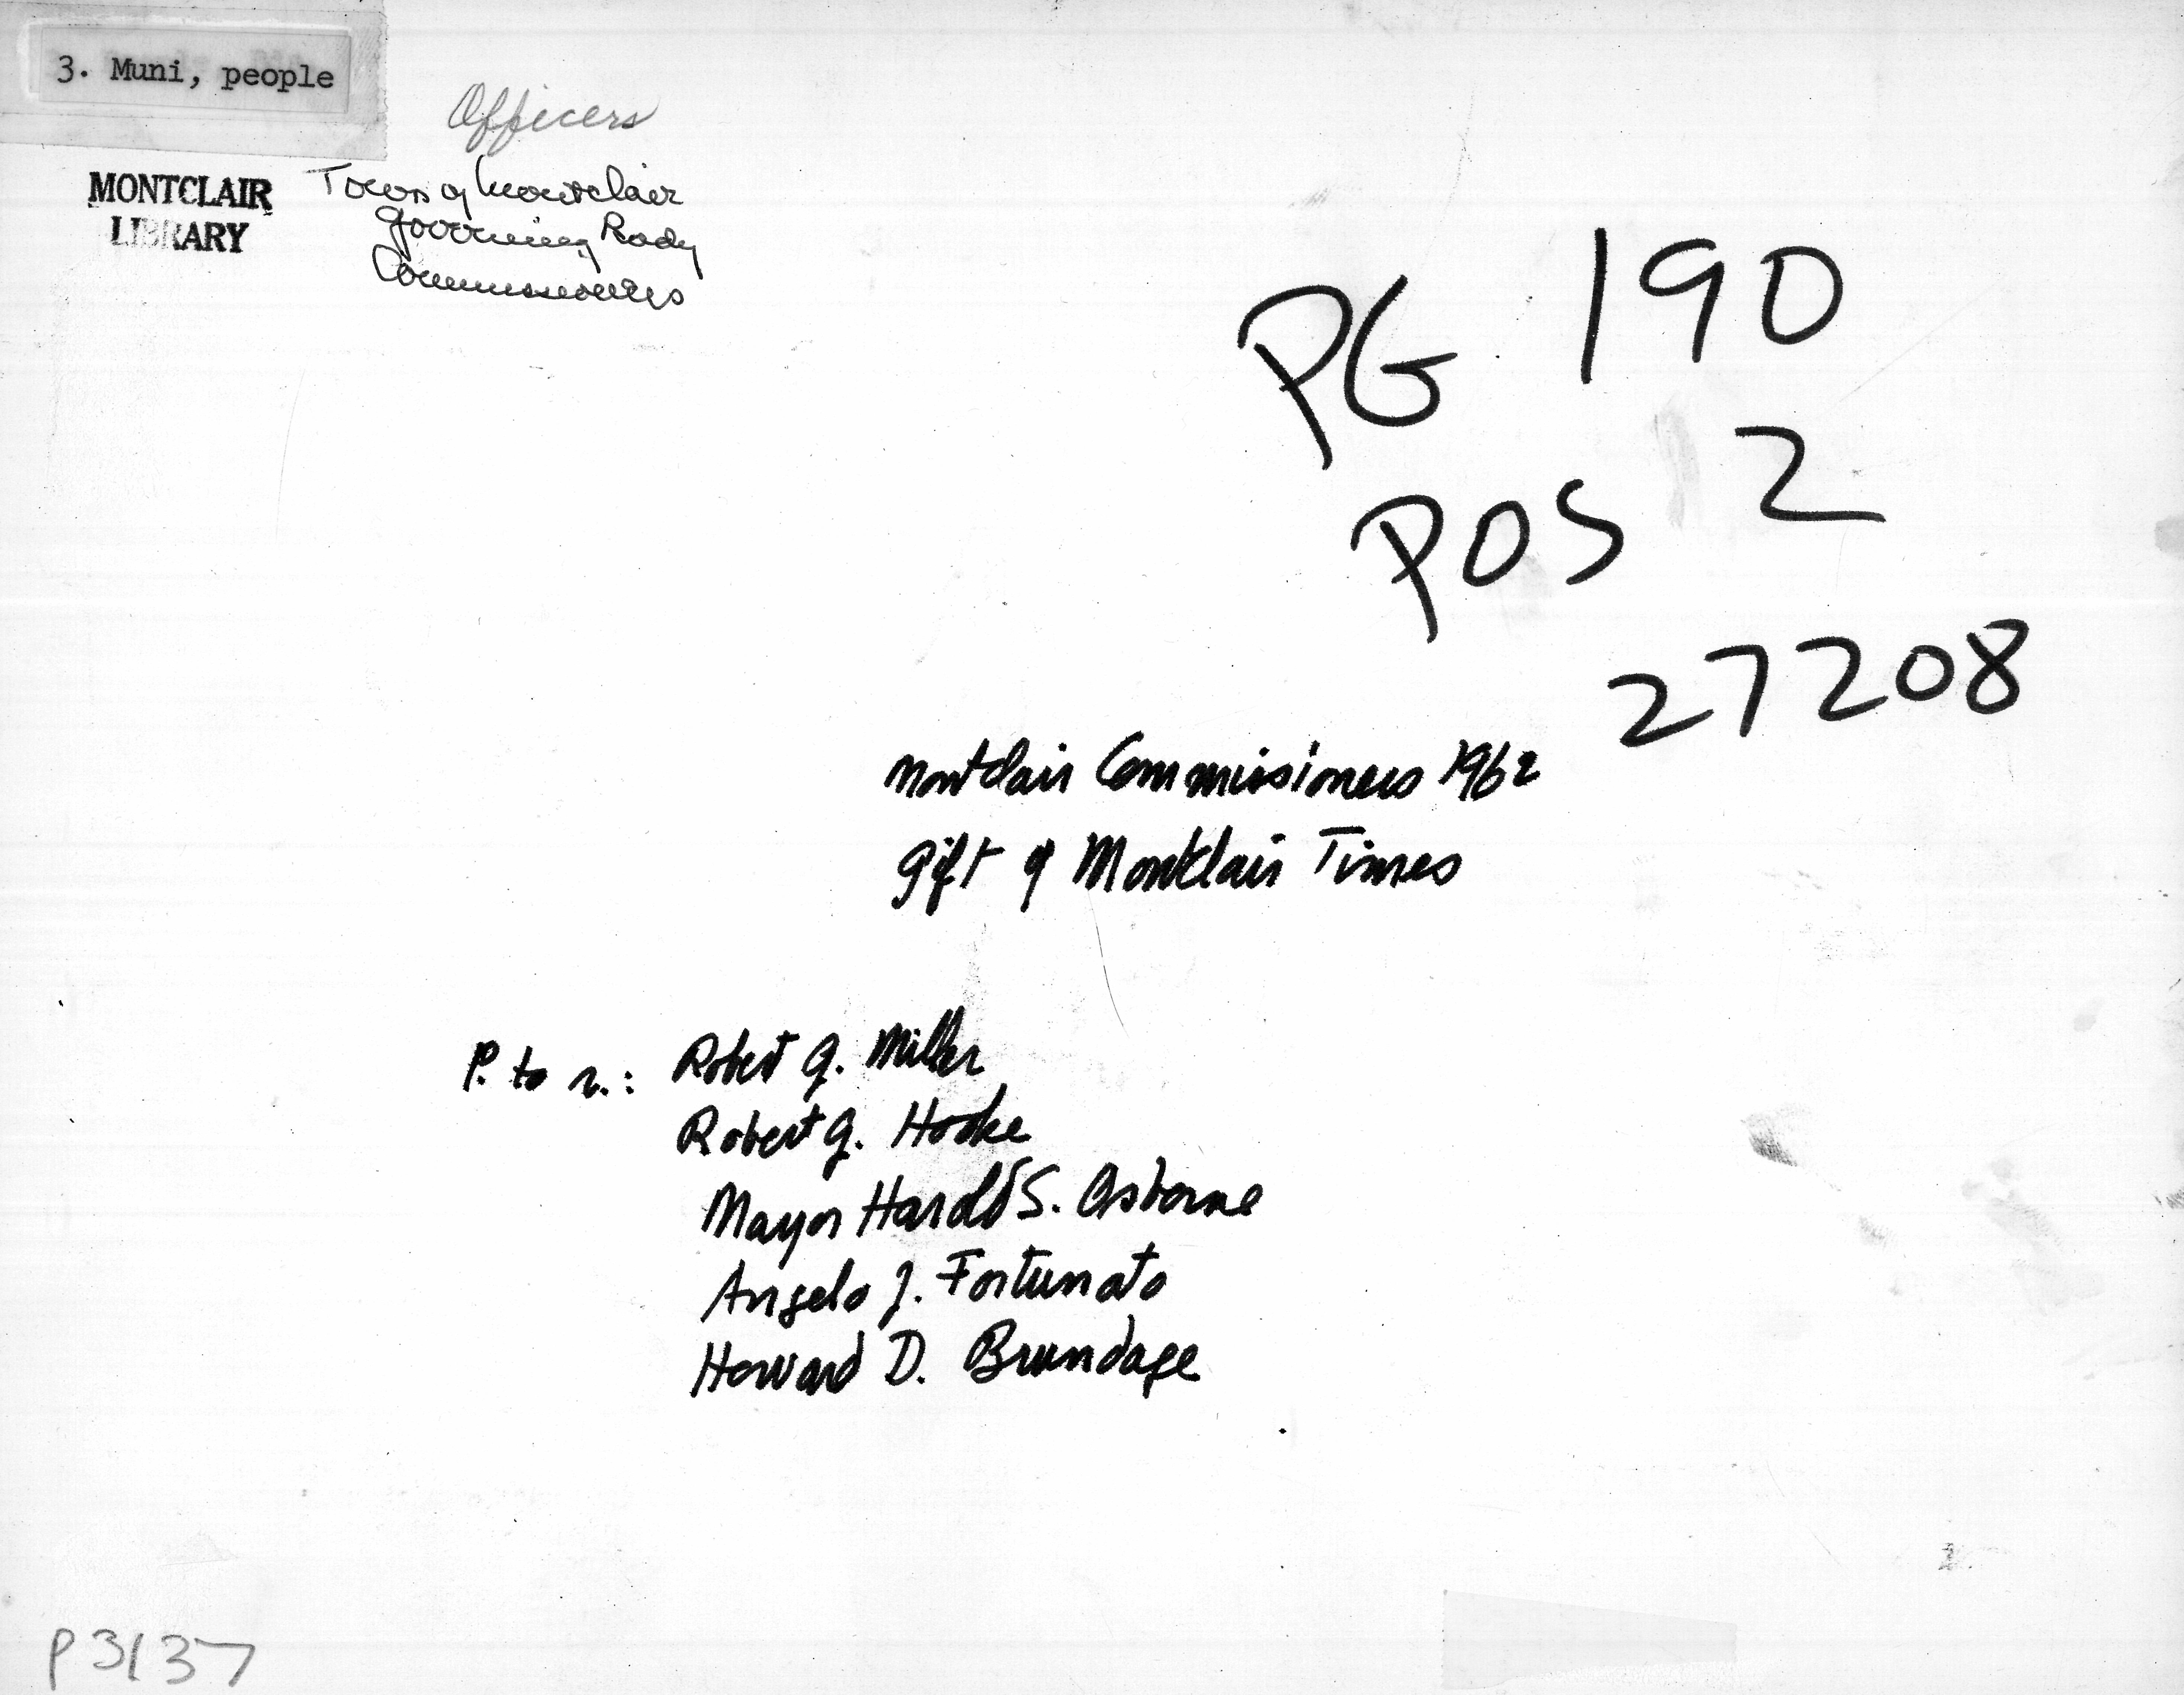 3. Muni, people
Officers
MONTCLAIR
LIBRARY
Town of Montclair
Governing Body
Commissioners
PG 190
POS 2
27208
Montclair Commissioners 1962
gift of Montclair Times
P. to r.: Robert G. Miller
Robert G. Hooke
Mayor Harold S. Osborne
Angelo J. Fortunato
Howard D. Brundage
P3137